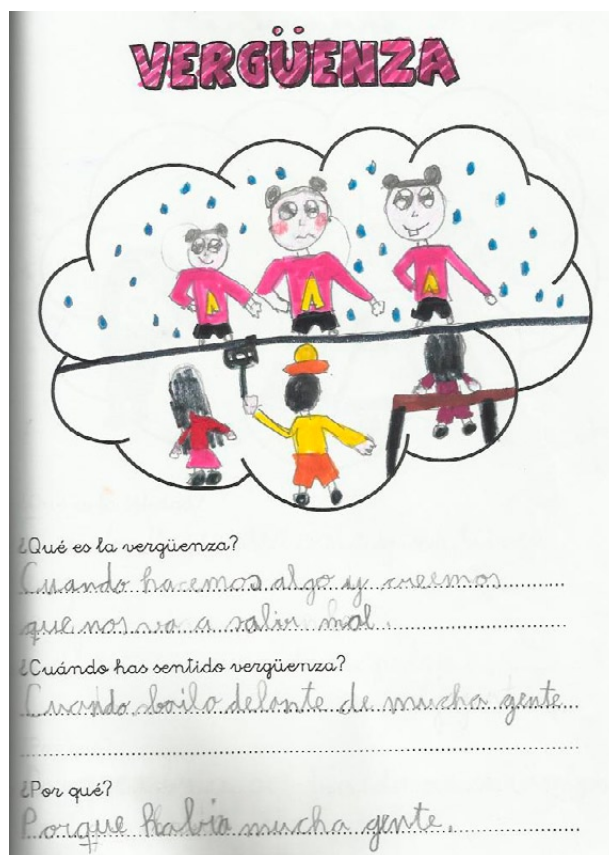 VERGÜENZA
A A A
¿Qué es la vergüenza?
Cuando hacemos algo y creemos
que nos va a salir mal.
¿Cuándo has sentido vergüenza?
Cuando bailo delante de mucha gente
¿Por qué?
Porque había mucha gente.